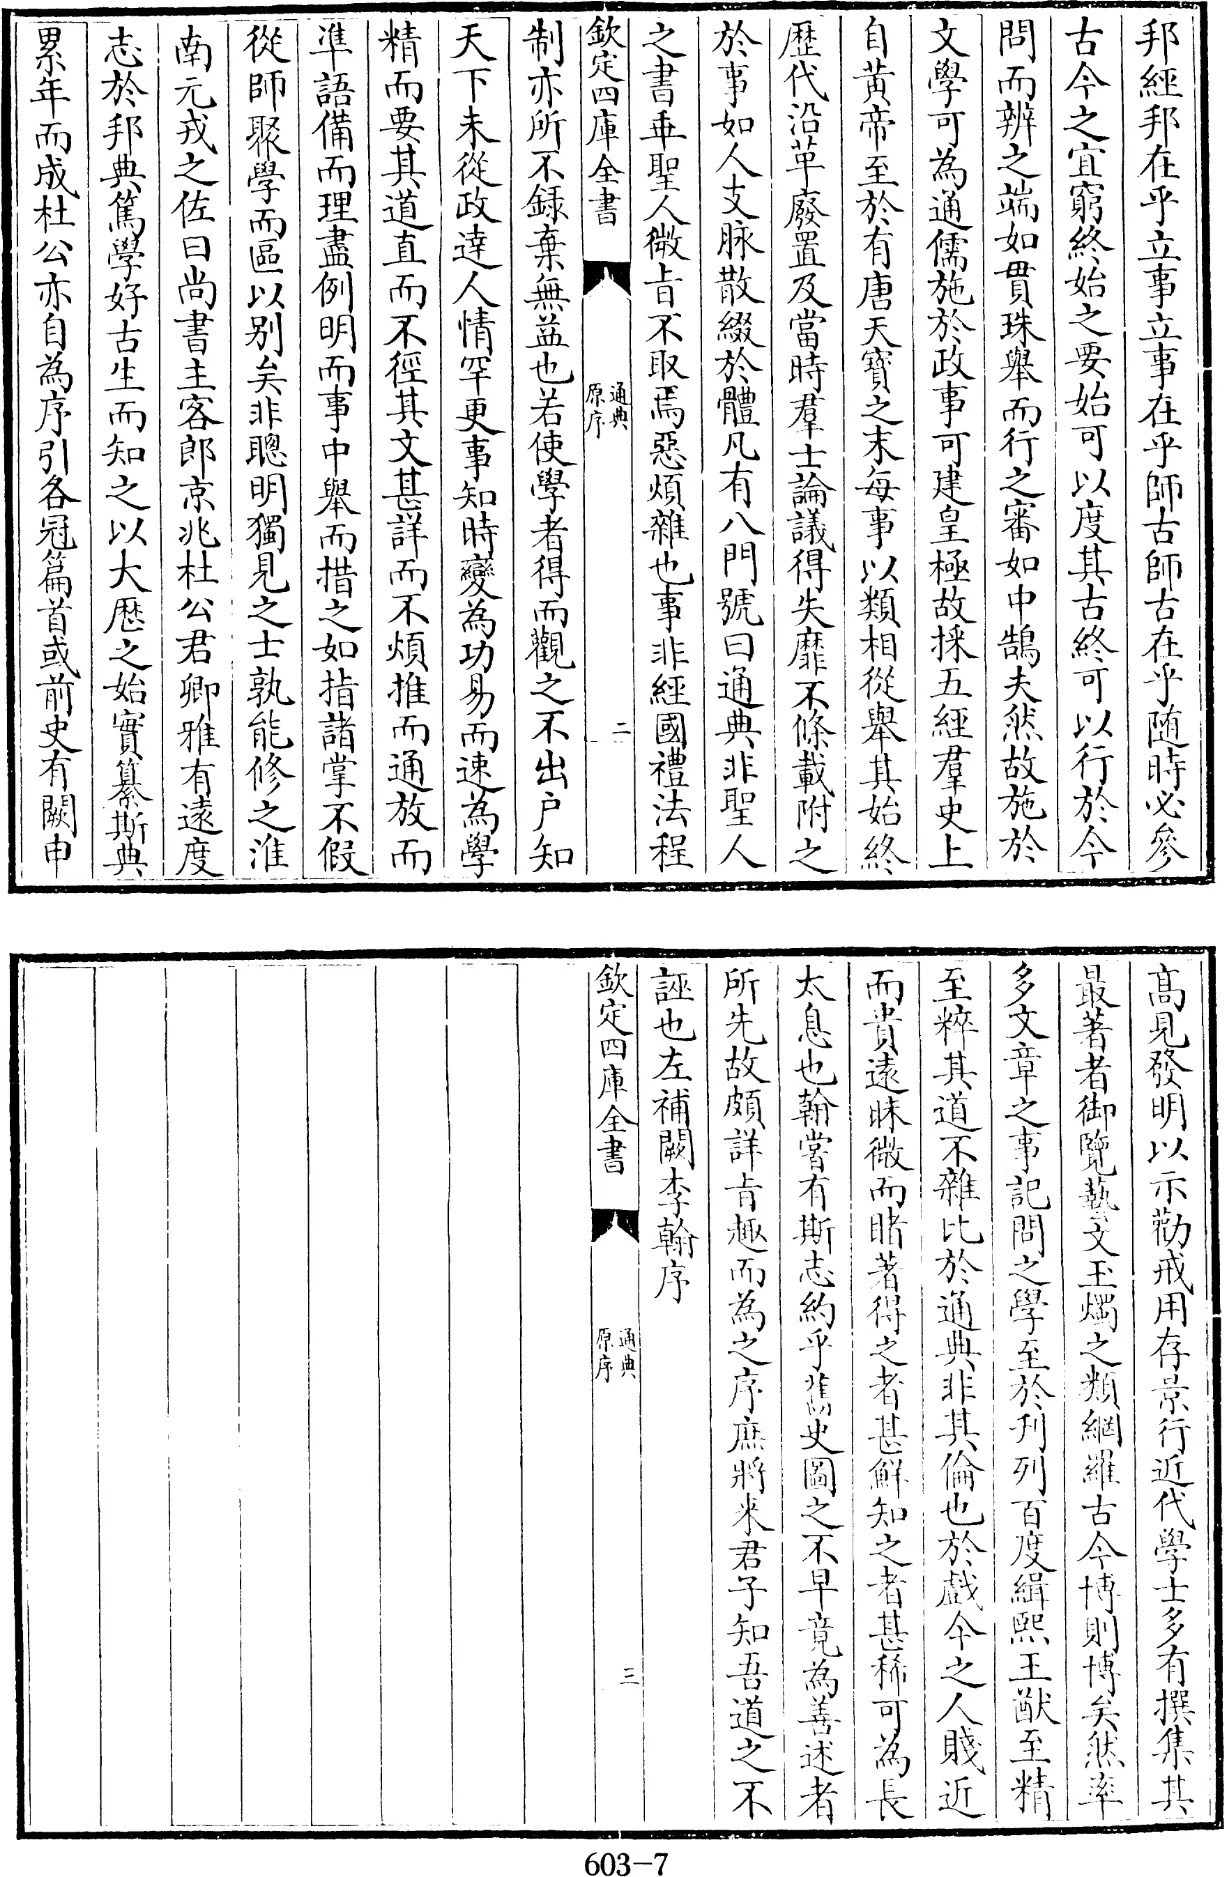 邦經邦在乎立事立事在乎師古師古在乎随時必參
古今之宜窮終始之要始可以度其古終可以行於今
問而辨之端如貫珠舉而行之審如中鵠夫然故施於
文學可為通儒施於政事可建皇極故採五經羣史上
自黄帝至於有唐天寳之末每事以類相從舉其始終
歴代沿革廢置及當時羣士論議得失靡不條載附之
於事如人支脉散綴於體凡有八門號曰通典非聖人
之書乖聖人微㫖不取焉惡煩雜也事非經國禮法程
欽定四庫全書
通典
原序
二
制亦所不録棄無益也若使學者得而觀之不出户知
天下未從政達人情罕更事知時變為功易而速為學
精而要其道直而不徑其文甚詳而不煩推而通放而
準語備而理盡例明而事中舉而措之如指諸掌不假
從師聚學而區以别矣非聰明獨見之士孰能修之淮
南元戎之佐曰尚書主客郎京兆杜公君卿雅有遠度
志於邦典篤學好古生而知之以大厯之始實纂斯典
累年而成杜公亦自為序引各冠篇首或前史有闕申
髙見發明以示勸戒用存景行近代學士多有撰集其
最著者御覽藝文玉燭之類網羅古今博則博矣然率
多文章之事記問之學至於刋列百度緝熙王猷至精
至粹其道不雜比於通典非其倫也於戲今之人賤近
而貴遠昧微而睹著得之者甚鮮知之者甚稀可為長
太息也翰嘗有斯志約乎舊史圖之不早竟為善述者
所先故頗詳㫖趣而為之序庶將來君子知吾道之不
誣也左補闕李翰序
欽定四庫全書
通典
原序
三
603-7